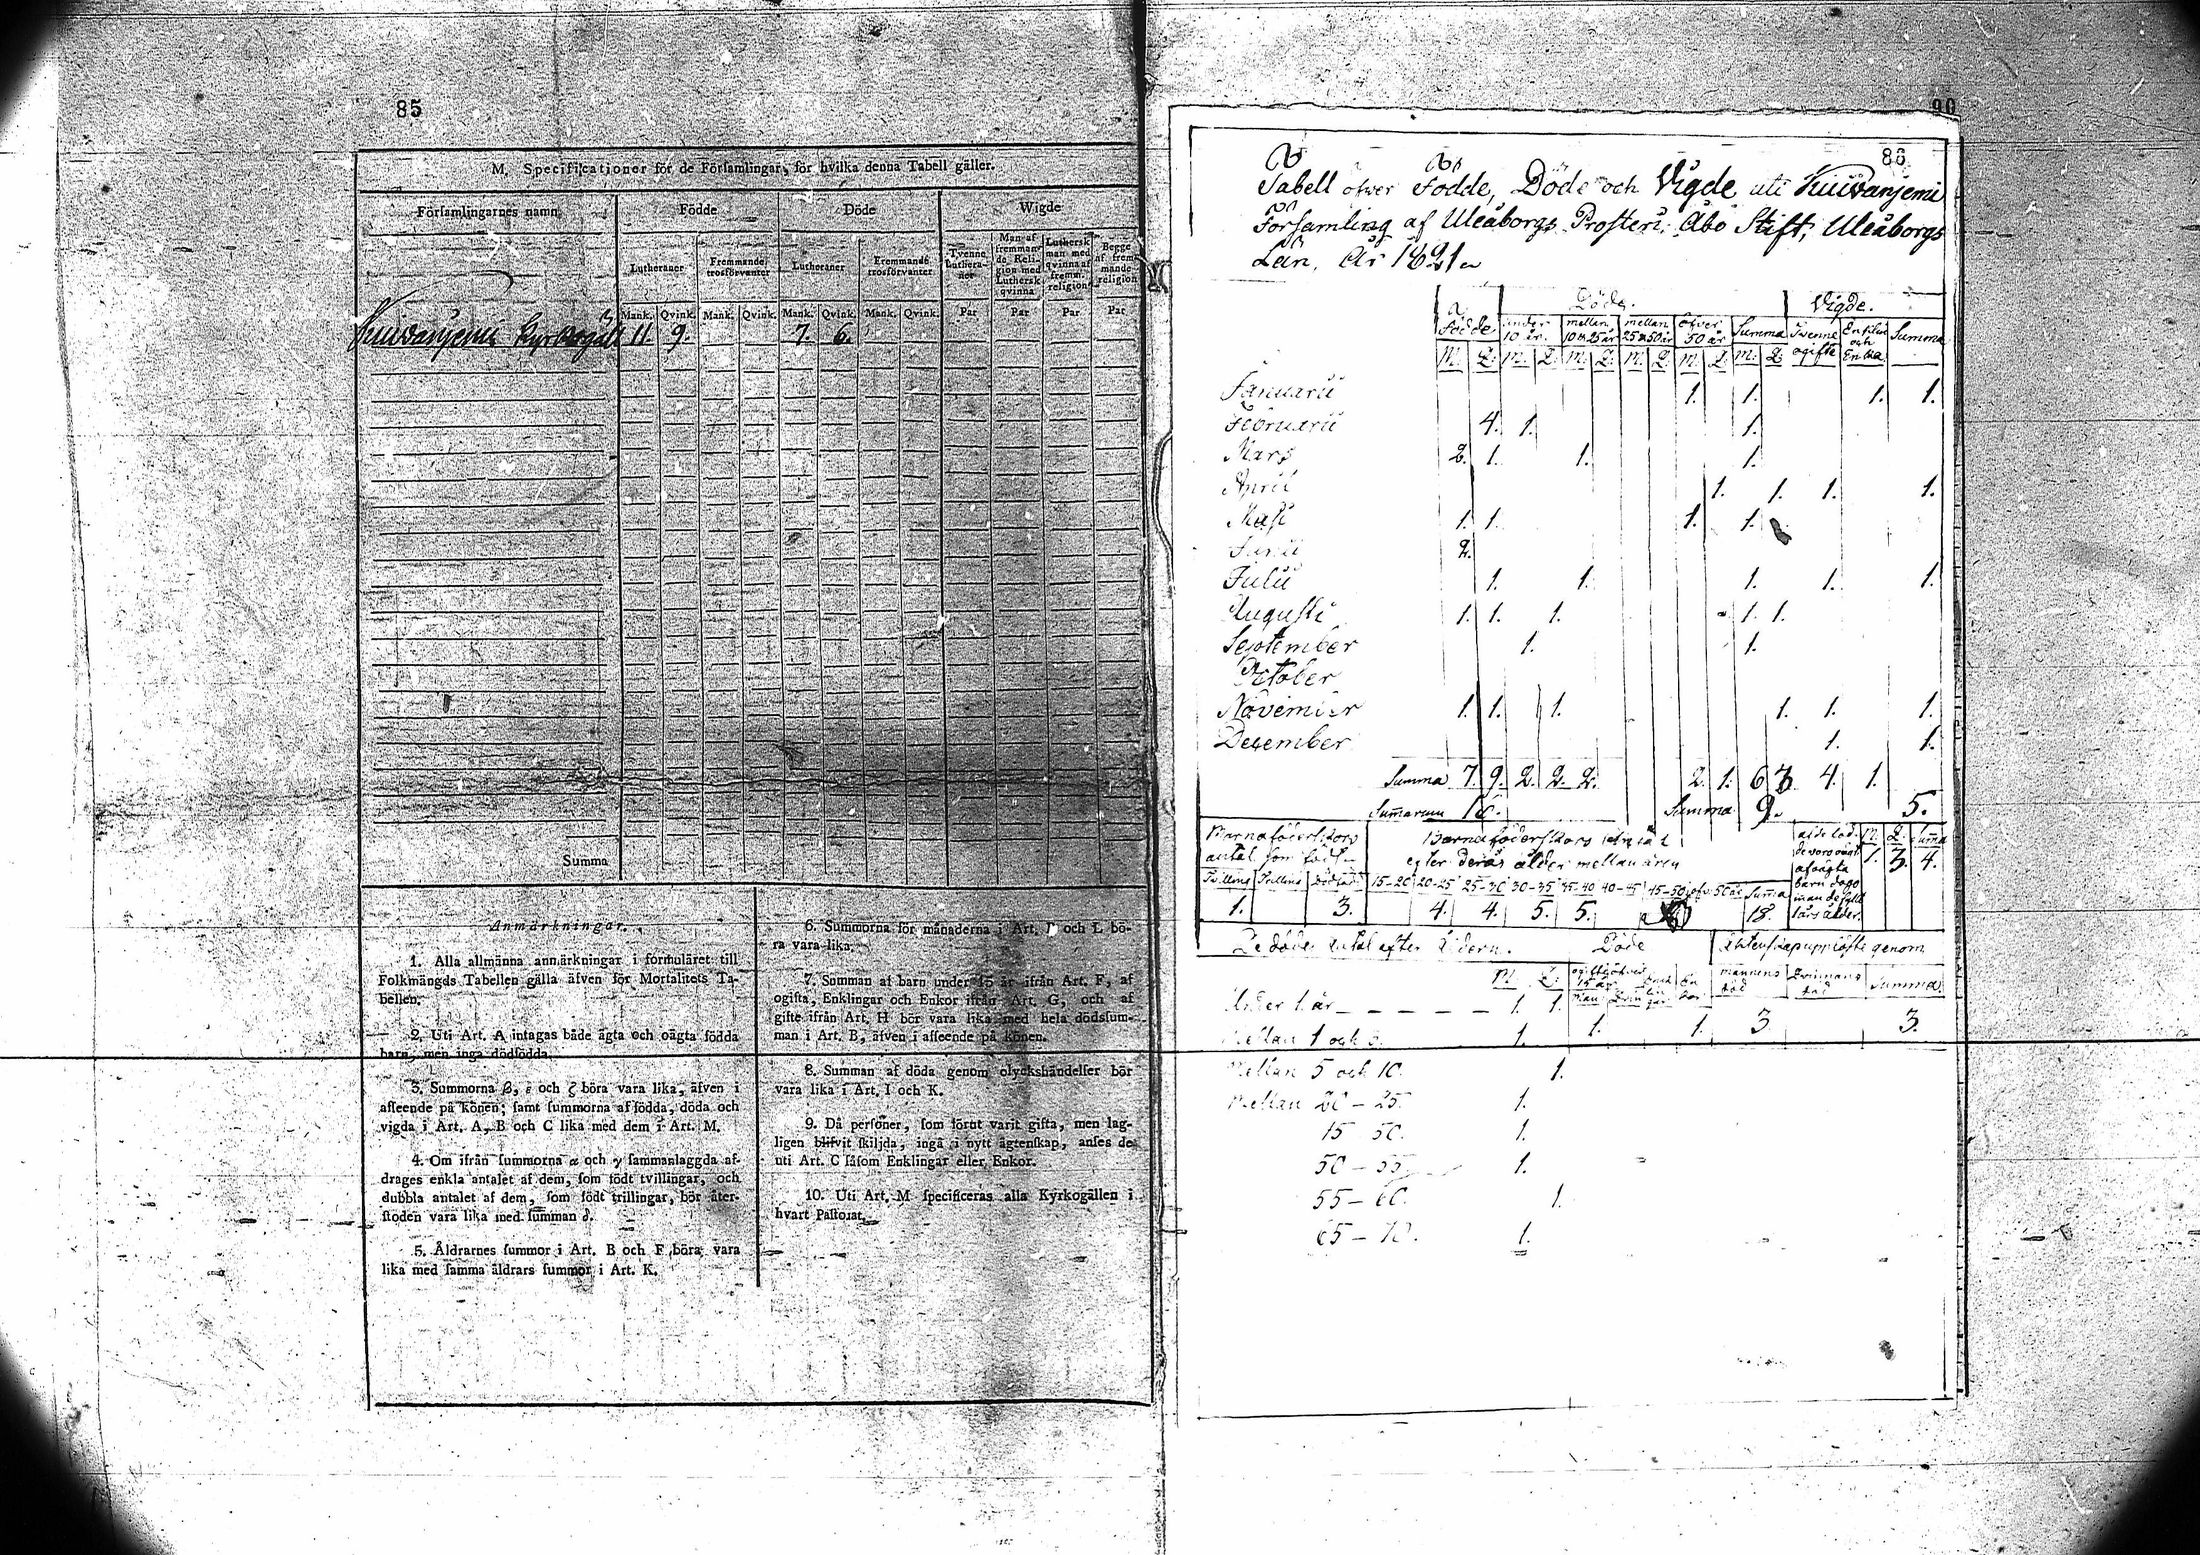 85
M. Specificationer för de Församlingar, för hvilka denna Tabell gäller.
Församlingarnes namn.
Födde
Döde
Wigde
Lutheraner
Fremmande trosförvanter
Lutheraner
Fremmande trosförvanter
Tvenne Lutheraner
Man af fremmande Religion med Luthersk qvinna
Luthersk man med qvinna af fremm. religion
Begge af fremmande religion
Mank. Qvink. Mank. Qvink. Mank. Qvink. Mank. Qvink. Par Par Par Par
Kiiwanjemi Kyrkogäll 11. 9. 7. 6.
Summa
Anmärkningar.
1. Alla allmänna anmärkningar i formuläret till
Folkmängds Tabellen gälla äfven för Mortalitets Ta-
bellen.
2. Uti Art. A intagas både ägta och oägta födda
barn, men inga dödfödda.
3. Summorna β, ε och ζ böra vara lika, äfven i
afseende på könen; samt summorna af födda, döda och
vigda i Art. A, B och C lika med dem i Art. M.
4. Om ifrån summorna α och γ sammanlaggda af-
drages enkla antalet af dem, som födt tvillingar, och
dubbla antalet af dem, som födt trillingar, bör åter-
stoden vara lika med summan δ.
5. Åldrarnes summor i Art. B och F böra vara
lika med samma åldrars summor i Art. K.
6. Summorna för månaderna i Art. och L bö-
ra vara lika.
7. Summan af barn under 15 år ifrån Art. F, af
ogifta, Enklingar och Enkor ifrån Art. G, och af
gifte ifrån Art. H bör vara lika med hela dödssum-
man i Art. B, äfven i afseende på könen.
8. Summan af döda genom olyckshändelser bör
vara lika i Art. I och K.
9. Då personer, som förut varit gifta, men lag-
ligen blifvit skiljda, ingå i nytt ägtenskap, anses de
uti Art. C såsom Enklingar eller Enkor.
10. Uti Art. M specificeras alla Kyrkogällen i
hvart Pastorat.
90
86
Tabell öfver Födde, Döde och Vigde uti Kiiwanjemi
Församling af Uleåborgs Prosteri, Åbo Stift, Uleåborgs
Län, År 1821
Födde Döde. Vigde.
under 10 år. mellan 10 & 25 år mellan 25 & 50 år öfver 50 år Summa Tvenne ogifte Enkling och Enka Summa
M. Q. M. Q. M. Q. M. Q. M. Q. M. Q.
Januarii 1. 1. 1. 1.
Februarii 4. 1. 1.
Mars 2. 1. 1. 1.
April 1. 1. 1. 1.
Maji 1. 1. 1. 1.
Junii 2.
Julii 1. 1. 1. 1. 1.
Augusti 1. 1. 1. 1. 1.
September 1. 1.
October
November 1. 1. 1. 1. 1. 1.
December 1. 1.
Summa 7. 9. 2. 2. 2. 2. 1. 6 3. 4. 1.
Summarum 16. Summa 9. 5.
Barnaföderskors
antal som födt
Tvillingar Trillingar Dödfödda
1. 3.
Barnaföderskors
efter deras ålder mellan åren
15-20 20-25 25-30 30-35 35-40 40-45 45-50 öfv. 50 år Summa
4. 4. 5. 5. 18.
M. Q. Summa
1. 3. 4.
De dödas antal efter åldern. Döde Äktenskap upplöste genom
M. Q. mannens död Qvinnans död Summa
Under 1 år 1. 1. 1. 1. 3 3.
Mellan 1 och 3. 1.
Mellan 5 och 10. 1.
Mellan 20 - 25. 1.
50. 1.
50 - 55 1.
55 - 60. 1.
65 - 70. 1.